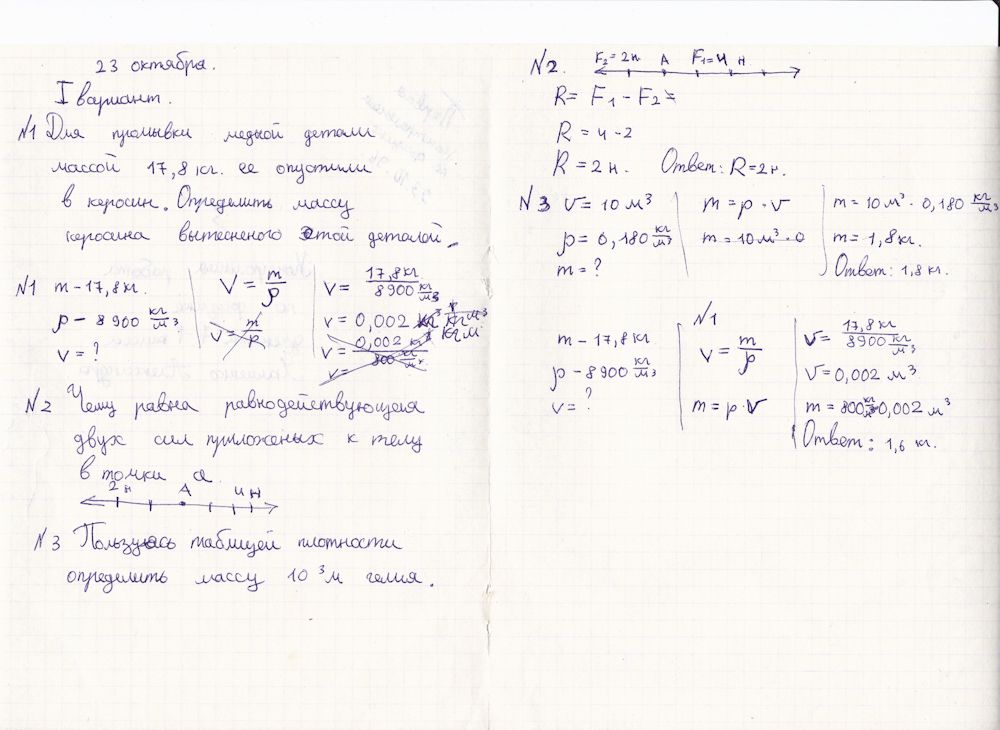 23 октября.
I вариант.
N1 Для промывки медной детали
массой 17,8 кг. ее опустили
в керосин. Определить массу
керосина вытесненого этой деталой.
N1 m - 17,8 кг.
ρ - 8900 кг/м³
v = ?
V = m/ρ
v = m/ρ
v = 17,8 кг / 8900 кг/м³
v = 0,002
v = 0,002
v =
N2 Чему равна равнодействующеия
двух сил приложеных к телу
в точки а.
2н A 4н
N3 Пользуясь таблицей плотности
определить массу 10 ³м гелия.
N2. F₂=2н A F₁=4 н
R = F₁ - F₂ =
R = 4 - 2
R = 2 н. Ответ: R = 2н.
N3 V = 10 м³
ρ = 0,180 кг/м³
m = ?
m = ρ · v
m = 10 м³ · 0
m = 10 м³ · 0,180 кг/м³
m = 1,8 кг.
Ответ: 1,8 кг.
N1
m - 17,8 кг
ρ - 8900 кг/м³
v = ?
V = m/ρ
m = ρ · V
V = 17,8 кг / 8900 кг/м³
V = 0,002 м³.
m = 800 кг/м³ · 0,002 м³
Ответ: 1,6 кг.